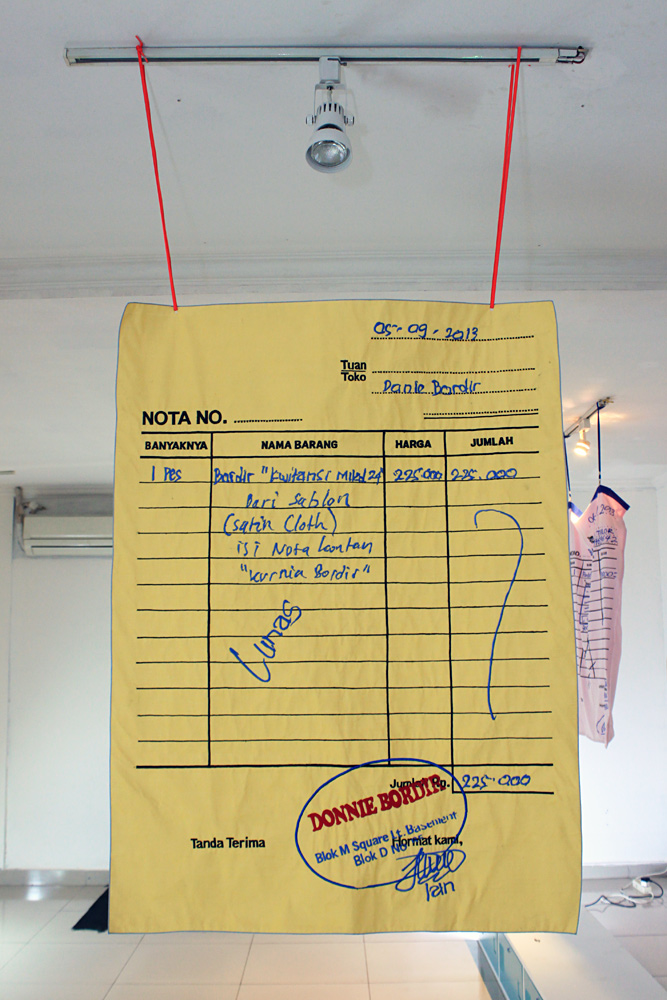 05-09-2013
Tuan
Toko
Danie Bordir
NOTA NO.
BANYAKNYA NAMA BARANG HARGA JUMLAH
1 Pcs Bordir "Kwitansi 225.000 225.000
Dari Sablon
(Satin Cloth)
isi Nota kontan
"Kurnia Bordir"
Lunas
Jumlah Rp. 225.000
DONNIE BORDIR
Blok M Square Lt. Basement
Blok D No
Tanda Terima Hormat kami,
Ian